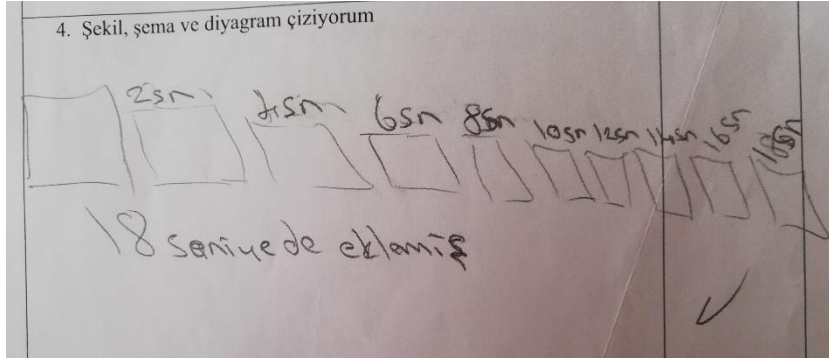 4. Şekil, şema ve diyagram çiziyorum
2sn 4sn 6sn 8sn 10sn 12sn 14sn 16sn 18sn
18 saniyede eklemiş